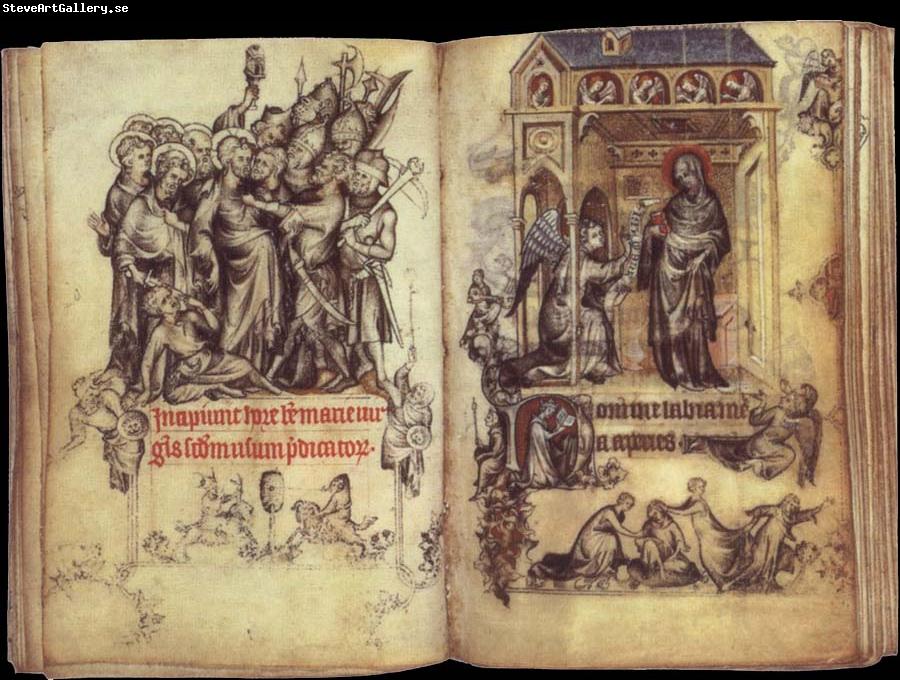 SteveArtGallery.se
Incipiunt hore be marie uir
gis scdm usum pdicatoꝝ.
Domine labia me
a aperies